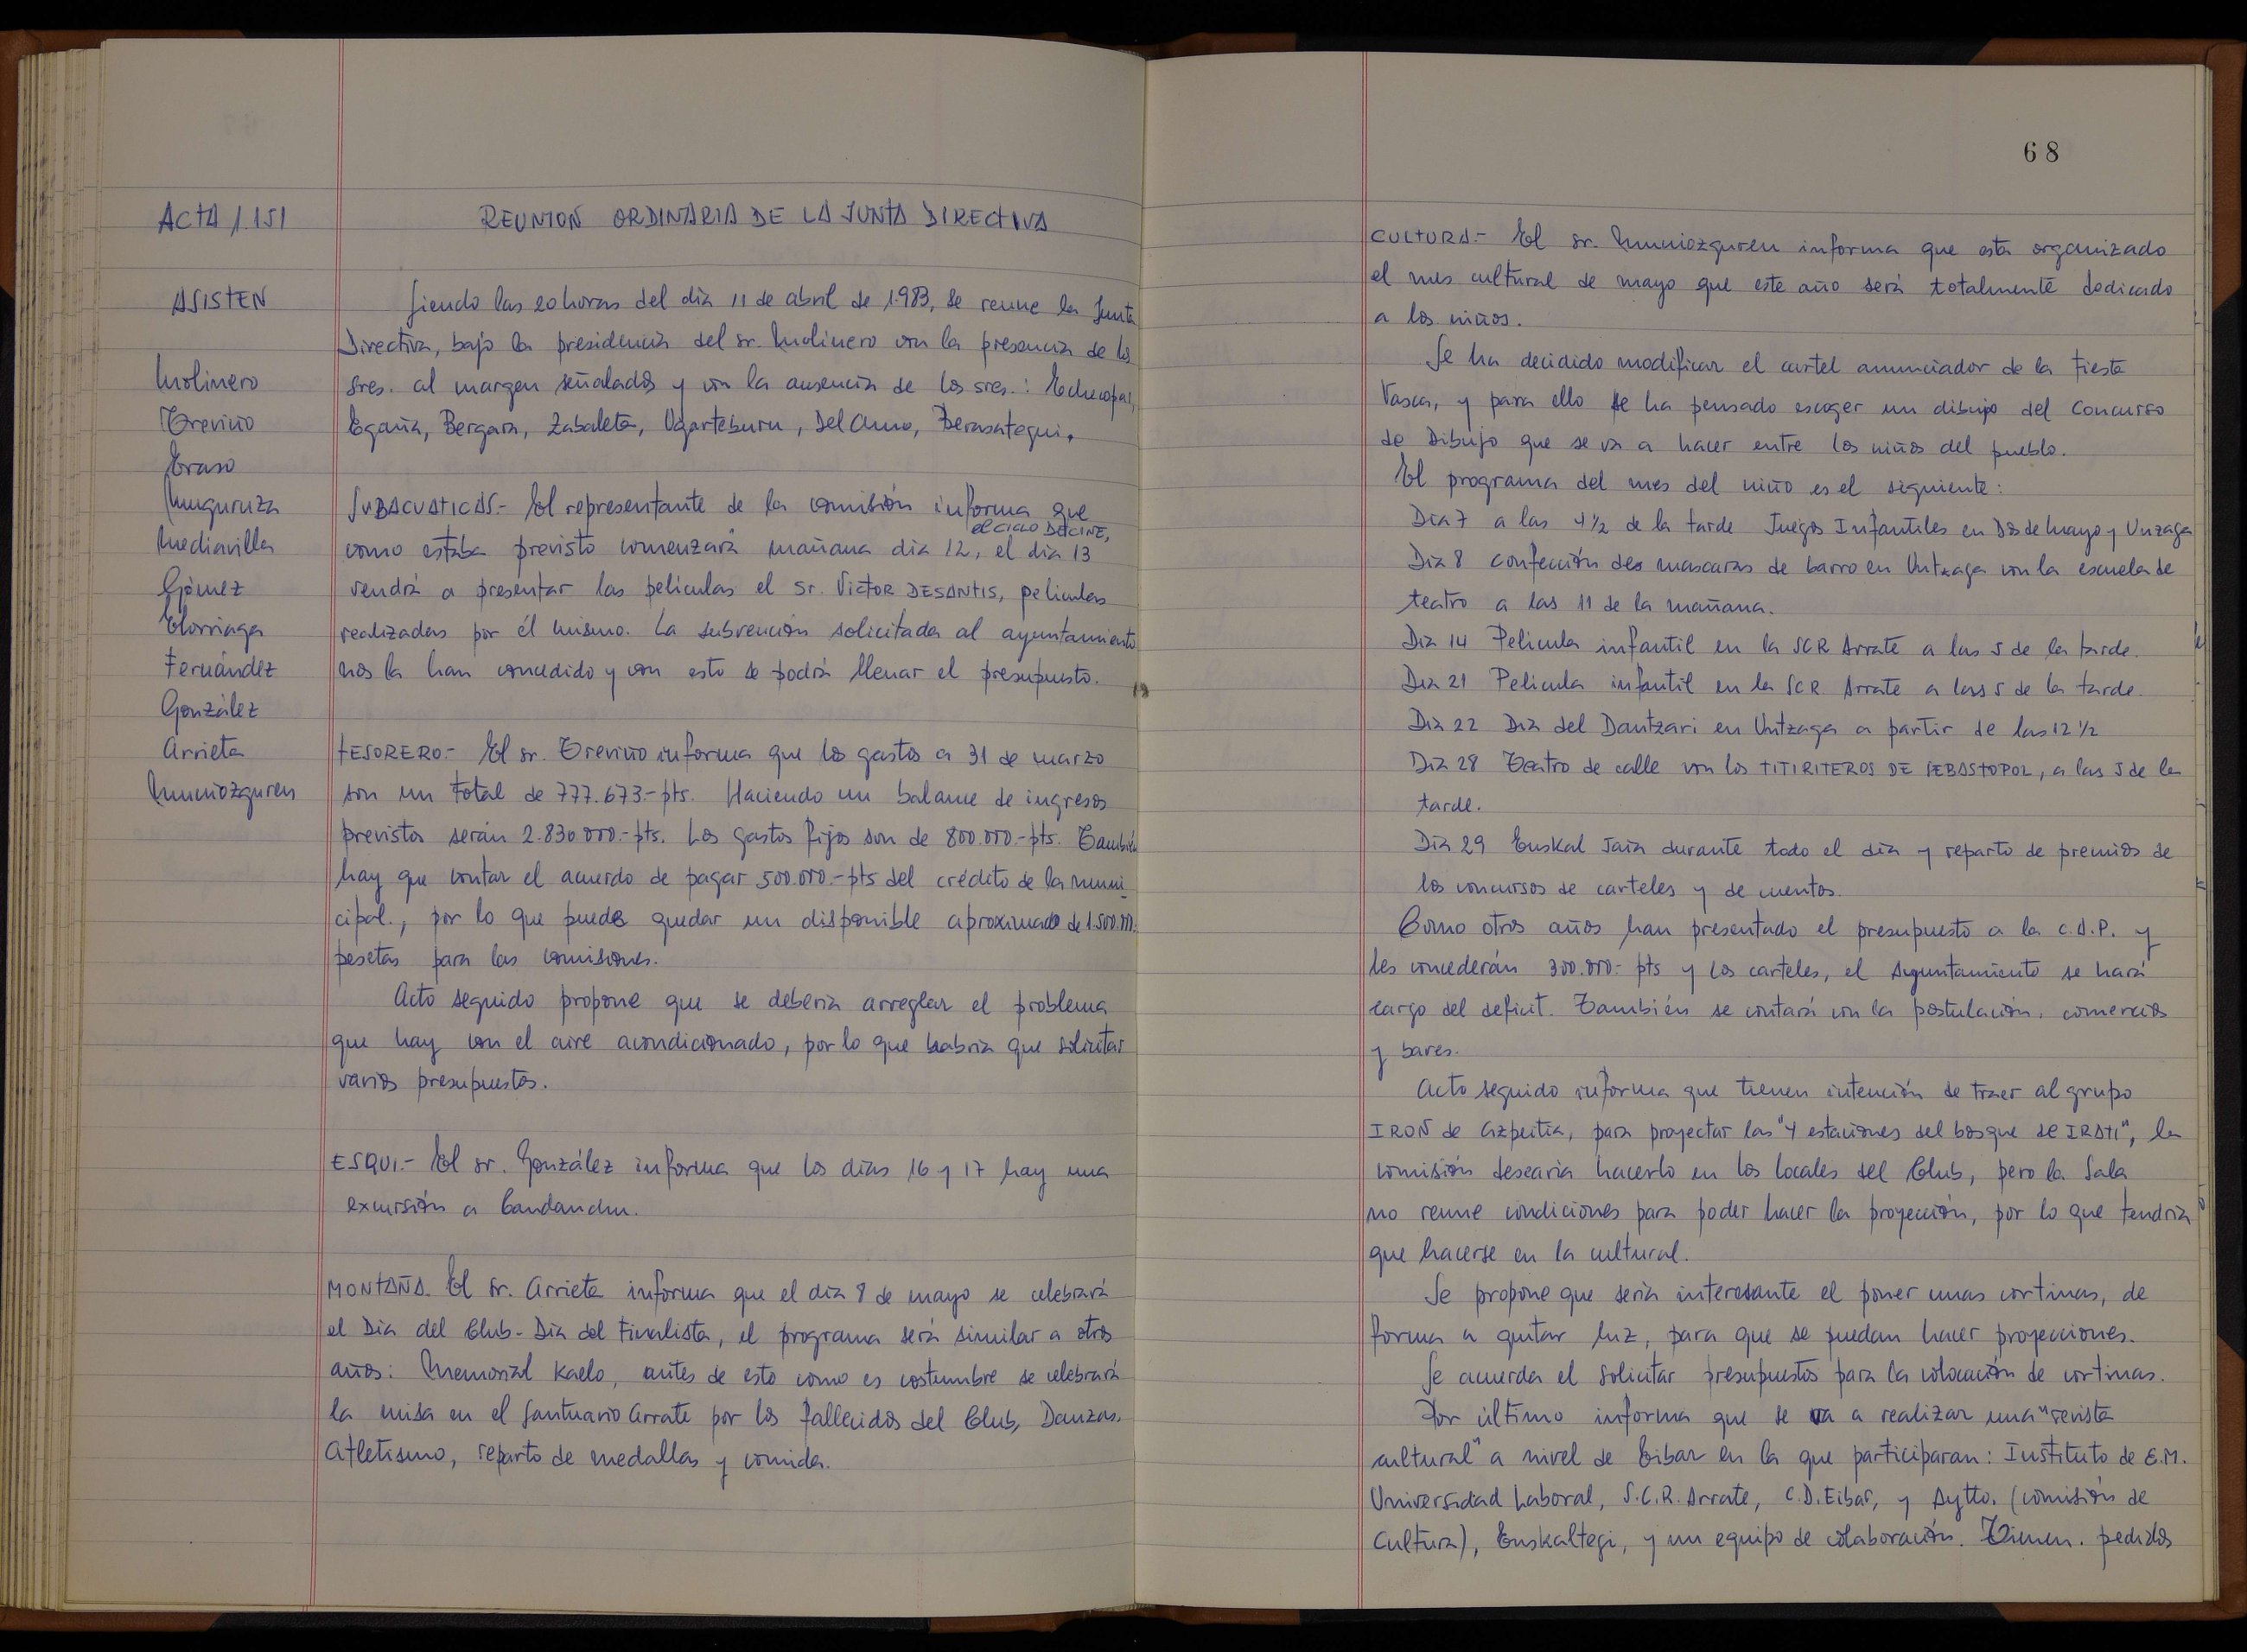 ACTA / 151
REUNION ORDINARIA DE LA JUNTA DIRECTIVA
ASISTEN
Molinero
Treviño
Eraso
Munguruza
Mediavilla
Gómez
Elorriaga
Fernández
González
Arrieta
Muniozguren
Siendo las 20 horas del dia 11 de abril de 1.983, se reune la Junta
Directiva, bajo la presidencia del sr. Molinero con la presencia de los
sres. al margen señalados y con la ausencia de los sres.: Echecopar,
Egaña, Bergara, Zabaleta, Ugarteburu, Del Amo, Berasategui.
SUBACUATICAS.- El representante de la comisión informa que
como estaba previsto comenzará mañana dia 12, el CICLO DE CINE, el dia 13
vendrá a presentar las peliculas el Sr. Victor DESANTIS, peliculas
realizadas por él mismo. La subvención solicitada al ayuntamiento
nos la han concedido y con esto se podrá llenar el presupuesto.
TESORERO.- El sr. Treviño informa que los gastos a 31 de marzo
son un total de 777.673.- pts. Haciendo un balance de ingresos
previstos serán 2.830.000.- pts. Los gastos fijos son de 800.000.- pts. También
hay que contar el acuerdo de pagar 500.000.- pts del crédito de la muni
cipal., por lo que puede quedar un disponible aproximado de 1.500.000.
pesetas para las comisiones.
Acto seguido propone que se deberia arreglar el problema
que hay con el aire acondicionado, por lo que habria que solicitar
varios presupuestos.
ESQUI.- El sr. González informa que los dias 16 y 17 hay una
excursión a Candanchu.
MONTAÑA. El sr. Arrieta informa que el dia 8 de mayo se celebrará
el Dia del Club - Dia del Finalista, el programa será similar a otros
años: Memorial Kaelo, antes de esto como es costumbre se celebrará
la misa en el Santuario Arrate por los fallecidos del Club, Danzas,
Atletismo, reparto de medallas y comida.
68
CULTURA.- El sr. Muniozguren informa que esta organizado
el mes cultural de mayo que este año será totalmente dedicado
a los niños.
Se ha decidido modificar el cartel anunciador de la Fiesta
Vasca, y para ello se ha pensado escoger un dibujo del Concurso
de Dibujo que se va a hacer entre los niños del pueblo.
El programa del mes del niño es el siguiente:
Dia 7 a las 4 1/2 de la tarde Juegos Infantiles en Dos de Mayo y Unzaga
Dia 8 confección de mascaras de barro en Untzaga con la escuela de
teatro a las 11 de la mañana.
Dia 14 Pelicula infantil en la SCR Arrate a las 5 de la tarde.
Dia 21 Pelicula infantil en la SCR Arrate a las 5 de la tarde.
Dia 22 Dia del Dantzari en Untzaga a partir de las 12 1/2
Dia 28 Teatro de calle con los TITIRITEROS DE SEBASTOPOL, a las 5 de la
tarde.
Dia 29 Euskal Jaia durante todo el dia y reparto de premios de
los concursos de carteles y de cuentos.
Como otros años han presentado el presupuesto a la C.A.P. y
les concederán 300.000.- pts y los carteles, el Ayuntamiento se hará
cargo del deficit. También se contará con la postulación, comercios
y bares.
Acto seguido informa que tienen intención de traer al grupo
IRON de Azpeitia, para proyectar las "4 estaciones del bosque de IRATI", la
comisión desearia hacerlo en los locales del Club, pero la Sala
no reune condiciones para poder hacer la proyección, por lo que tendria
que hacerse en la cultural.
Se propone que seria interesante el poner unas cortinas, de
forma a quitar luz, para que se puedan hacer proyecciones.
Se acuerda el solicitar presupuestos para la colocación de cortinas.
Por último informa que se va a realizar una "revista
cultural" a nivel de Eibar en la que participaran: Instituto de E.M.
Universidad Laboral, S.C.R. Arrate, C.D. Eibar, y Aytto. (comisión de
Cultura), Euskaltegi, y un equipo de colaboración. Tienen. pedidos